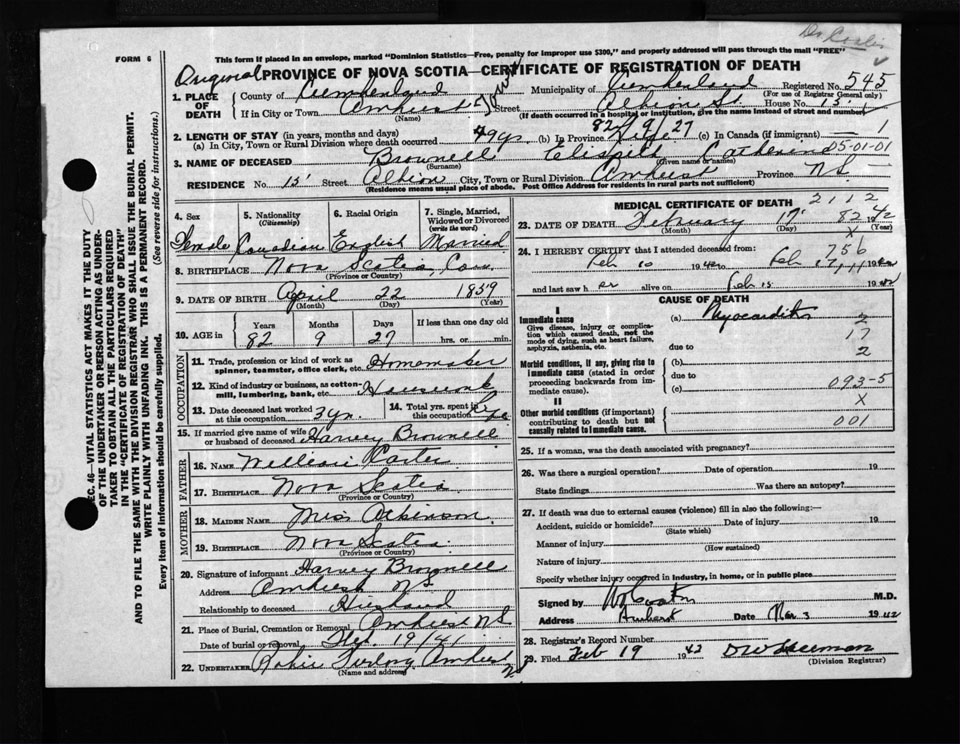 Dr Coates
This form if placed in an envelope, marked "Dominion Statistics—Free, penalty for improper use $300," and properly addressed will pass through the mail "FREE"
FORM 6
Original PROVINCE OF NOVA SCOTIA—CERTIFICATE OF REGISTRATION OF DEATH
1. PLACE OF DEATH County of Cumberland Municipality of Cumberland Registered No. 545
(For use of Registrar General only)
If in City or Town Amherst Street Albion St. House No. 15
(Name) (If death occurred in a hospital or institution, give the name instead of street and number)
2. LENGTH OF STAY (in years, months and days) 82/9/27
(a) In City, Town or Rural Division where death occurred 49 yrs. (b) In Province Life (c) In Canada (if immigrant) — 1
3. NAME OF DECEASED Brownell Catherine 05-01-01
(Surname) (Given name or names)
RESIDENCE No. 15 Street Albion City, Town or Rural Division Amherst Province N.S.
(Residence means usual place of abode. Post Office Address for residents in rural parts not sufficient)
SEC. 46—VITAL STATISTICS ACT MAKES IT THE DUTY OF THE UNDERTAKER OR PERSON ACTING AS UNDERTAKER TO OBTAIN ALL THE PARTICULARS REQUIRED IN THE "CERTIFICATE OF REGISTRATION OF DEATH" AND TO FILE THE SAME WITH THE DIVISION REGISTRAR WHO SHALL ISSUE THE BURIAL PERMIT.
WRITE PLAINLY WITH UNFADING INK. THIS IS A PERMANENT RECORD.
Every item of information should be carefully supplied. (See reverse side for instructions.)
4. Sex Female
5. Nationality (Citizenship) Canadian
6. Racial Origin English
7. Single, Married, Widowed or Divorced (write the word) Married
8. BIRTHPLACE Nova Scotia, Can.
(Province or Country)
9. DATE OF BIRTH April 22 1859
(Month) (Day) (Year)
10. AGE in Years 82 Months 9 Days 27 If less than one day old hrs. or min.
OCCUPATION
11. Trade, profession or kind of work as spinner, teamster, office clerk, etc. Homemaker
12. Kind of industry or business, as cotton-mill, lumbering, bank, etc. Housework
13. Date deceased last worked at this occupation. 3 yr.
14. Total yrs. spent in this occupation
15. If married give name of wife or husband of deceased Harvey Brownell
FATHER
16. NAME William Carter
17. BIRTHPLACE Nova Scotia
(Province or Country)
MOTHER
18. MAIDEN NAME Miss Atkinson
19. BIRTHPLACE Nova Scotia
(Province or Country)
20. Signature of informant Harvey Brownell
Address Amherst N.S.
Relationship to deceased Husband
21. Place of Burial, Cremation or Removal Amherst N.S.
Date of burial or removal Feb. 19/41
22. UNDERTAKER Furlong Amherst NS
(Name and address)
MEDICAL CERTIFICATE OF DEATH 2112
23. DATE OF DEATH February 17 82 1942
(Month) (Day) (Year)
X
24. I HEREBY CERTIFY that I attended deceased from: 756
Feb 10 1942 to Feb 17 1942
and last saw her alive on Feb 15 1942
CAUSE OF DEATH
I
Immediate cause (a) Myocarditis 2
Give disease, injury or complication which caused death, not the mode of dying, such as heart failure, asphyxia, asthenia, etc. 17
due to 2
Morbid conditions, if any, giving rise to immediate cause (stated in order proceeding backwards from immediate cause). (b)
due to
(c) 093-5
X
II
Other morbid conditions (if important) contributing to death but not causally related to immediate cause. 001
25. If a woman, was the death associated with pregnancy?
26. Was there a surgical operation? Date of operation 19
State findings Was there an autopsy?
27. If death was due to external causes (violence) fill in also the following:—
Accident, suicide or homicide? Date of injury 19
(State which)
Manner of injury
(How sustained)
Nature of injury
Specify whether injury occurred in industry, in home, or in public place
Signed by M.D.
Address Amherst Date Mar 3 1942
28. Registrar's Record Number
29. Filed Feb 19 1942
(Division Registrar)